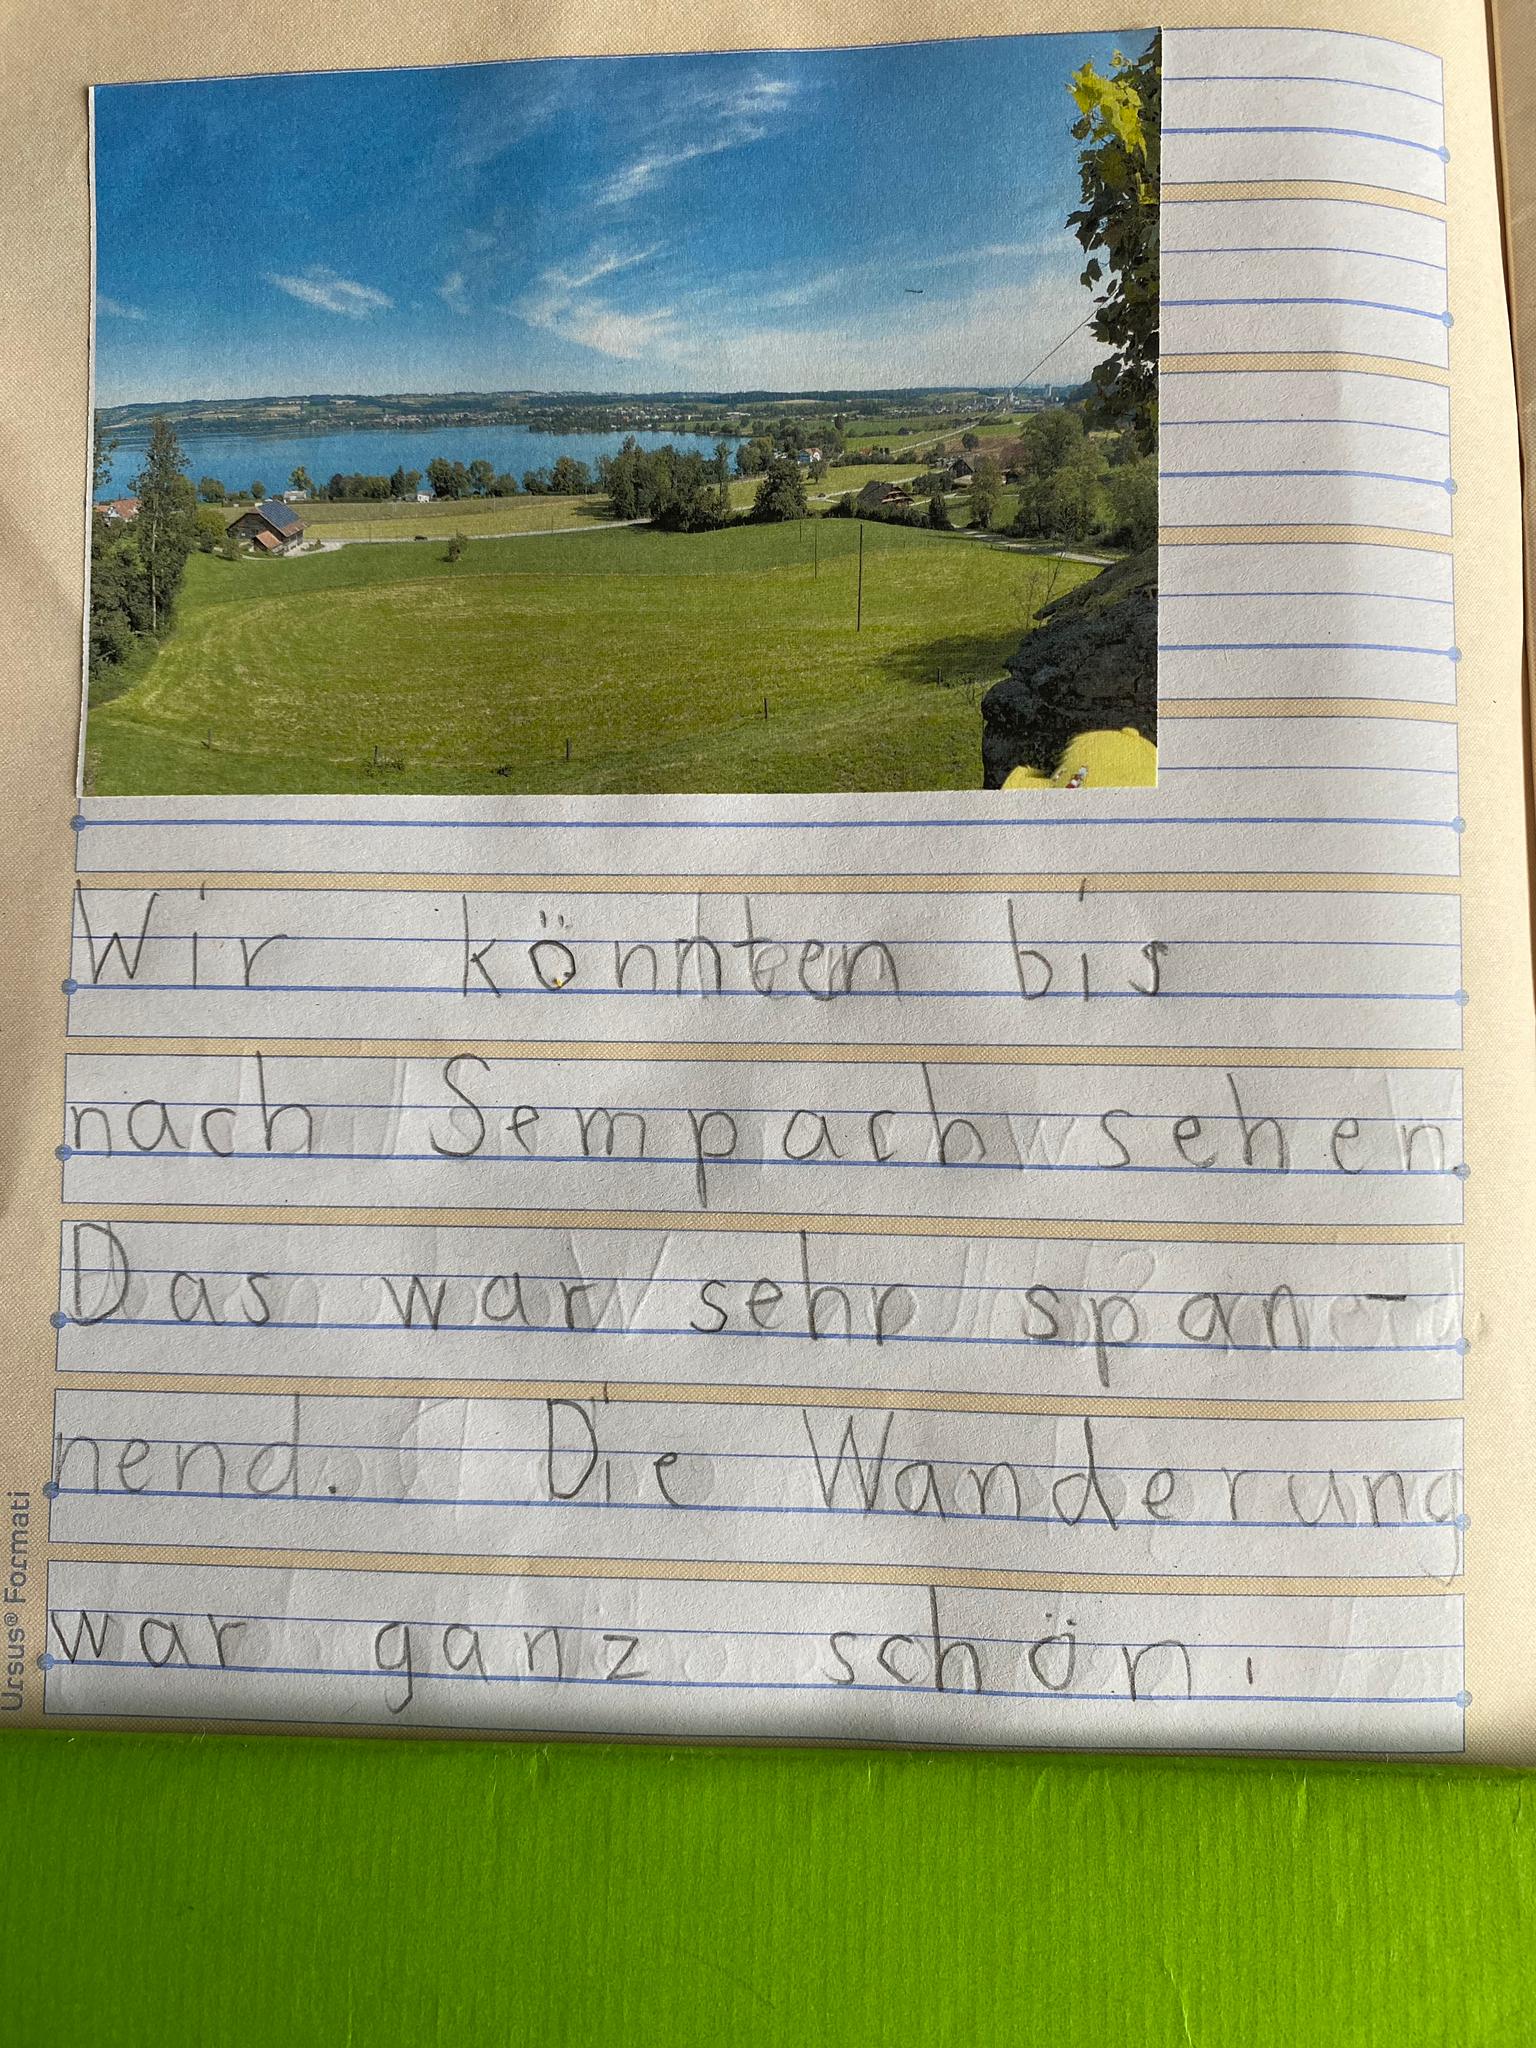 Wir könnten bis
nach Sempach sehen.
Das war sehr span-
nend. Die Wanderung
war ganz schön.
Ursus® Formati